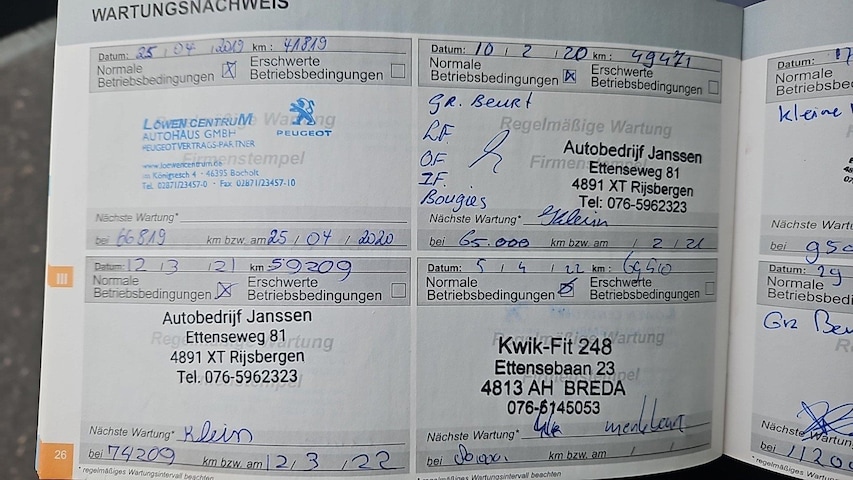 WARTUNGSNACHWEIS
Datum: 25 / 04 / 2019 km: 41819
Normale Betriebsbedingungen ☒ Erschwerte Betriebsbedingungen ☐
Regelmäßige Wartung
LÖWEN CENTRUM
AUTOHAUS GMBH
PEUGEOT VERTRAGS-PARTNER
PEUGEOT
Firmenstempel
www.loewencentrum.de
Im Königsesch 4 · 46395 Bocholt
Tel. 02871/23457-0 · Fax 02871/23457-10
Nächste Wartung*
bei 66819 km bzw. am 25 / 04 / 2020
Datum: 10 / 2 / 20 km: 49471
Normale Betriebsbedingungen ☒ Erschwerte Betriebsbedingungen ☐
Gr. Beurt
Regelmäßige Wartung
LF.
OF
IF.
Bougies
Firmenstempel
Autobedrijf Janssen
Ettenseweg 81
4891 XT Rijsbergen
Tel: 076-5962323
Nächste Wartung* Klein
bei 65.000 km bzw. am / 2 / 21
Datum: 12 / 3 / 21 km: 59209
Normale Betriebsbedingungen ☒ Erschwerte Betriebsbedingungen ☐
Autobedrijf Janssen
Ettenseweg 81
4891 XT Rijsbergen
Tel. 076-5962323
Nächste Wartung* Klein
bei 74209 km bzw. am 12 / 3 / 22
Datum: 5 / 4 / 22 km:
Normale Betriebsbedingungen ☒ Erschwerte Betriebsbedingungen ☐
Kwik-Fit 248
Ettensebaan 23
4813 AH BREDA
076-5145053
Nächste Wartung*
bei km bzw. am / /
* regelmäßiges Wartungsintervall beachten
* regelmäßiges Wartungsintervall beachten
III
26
Datum:
Normale
Betriebsbedingungen
kleine
Nächste Wartung
bei 950
Datum: 29
Normale
Betriebsbedingungen
Grz Beu
Nächste Wartung
bei 11200
* regelmäßiges Wartungsin